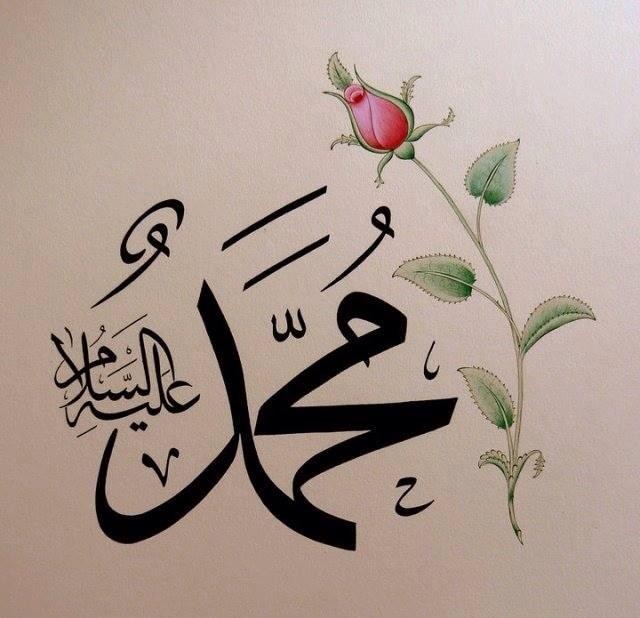 مُحَمَّدٌ
عليه السَّلَامُ